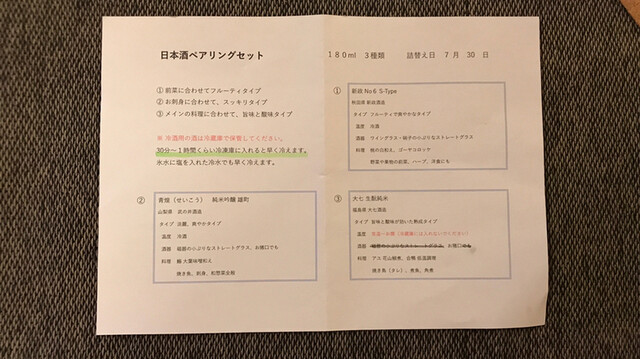 日本酒ペアリングセット
180ml 3種類 詰替え日 7月 30 日
① 前菜に合わせてフルーティタイプ
② お刺身に合わせて、スッキリタイプ
③ メインの料理に合わせて、旨味と酸味タイプ
※ 冷酒用の酒は冷蔵庫で保管してください。
30分～1時間くらい冷凍庫に入れると早く冷えます。
氷水に塩を入れた冷水でも早く冷えます。
①
新政 No6 S-Type
秋田県 新政酒造
タイプ フルーティで爽やかなタイプ
温度 冷酒
酒器 ワイングラス・硝子の小ぶりなストレートグラス
料理 桃の白和え、ゴーヤコロッケ
野菜や果物の前菜、ハーブ、洋食にも
②
青煌（せいこう） 純米吟醸 雄町
山梨県 武の井酒造
タイプ 淡麗、爽やかタイプ
温度 冷酒
酒器 磁器の小ぶりなストレートグラス、お猪口でも
料理 大葉味噌和え
焼き鳥、刺身、和惣菜全般
③
大七 生酛純米
福島県 大七酒造
タイプ 旨味と酸味が効いた熟成タイプ
温度 常温～お燗（冷蔵庫には入れないでください）
酒器 磁器の小ぶりなストレートグラス、お猪口でも
料理 アユ 花山椒煮、合鴨 低温調理
焼き鳥（タレ）、煮魚、角煮